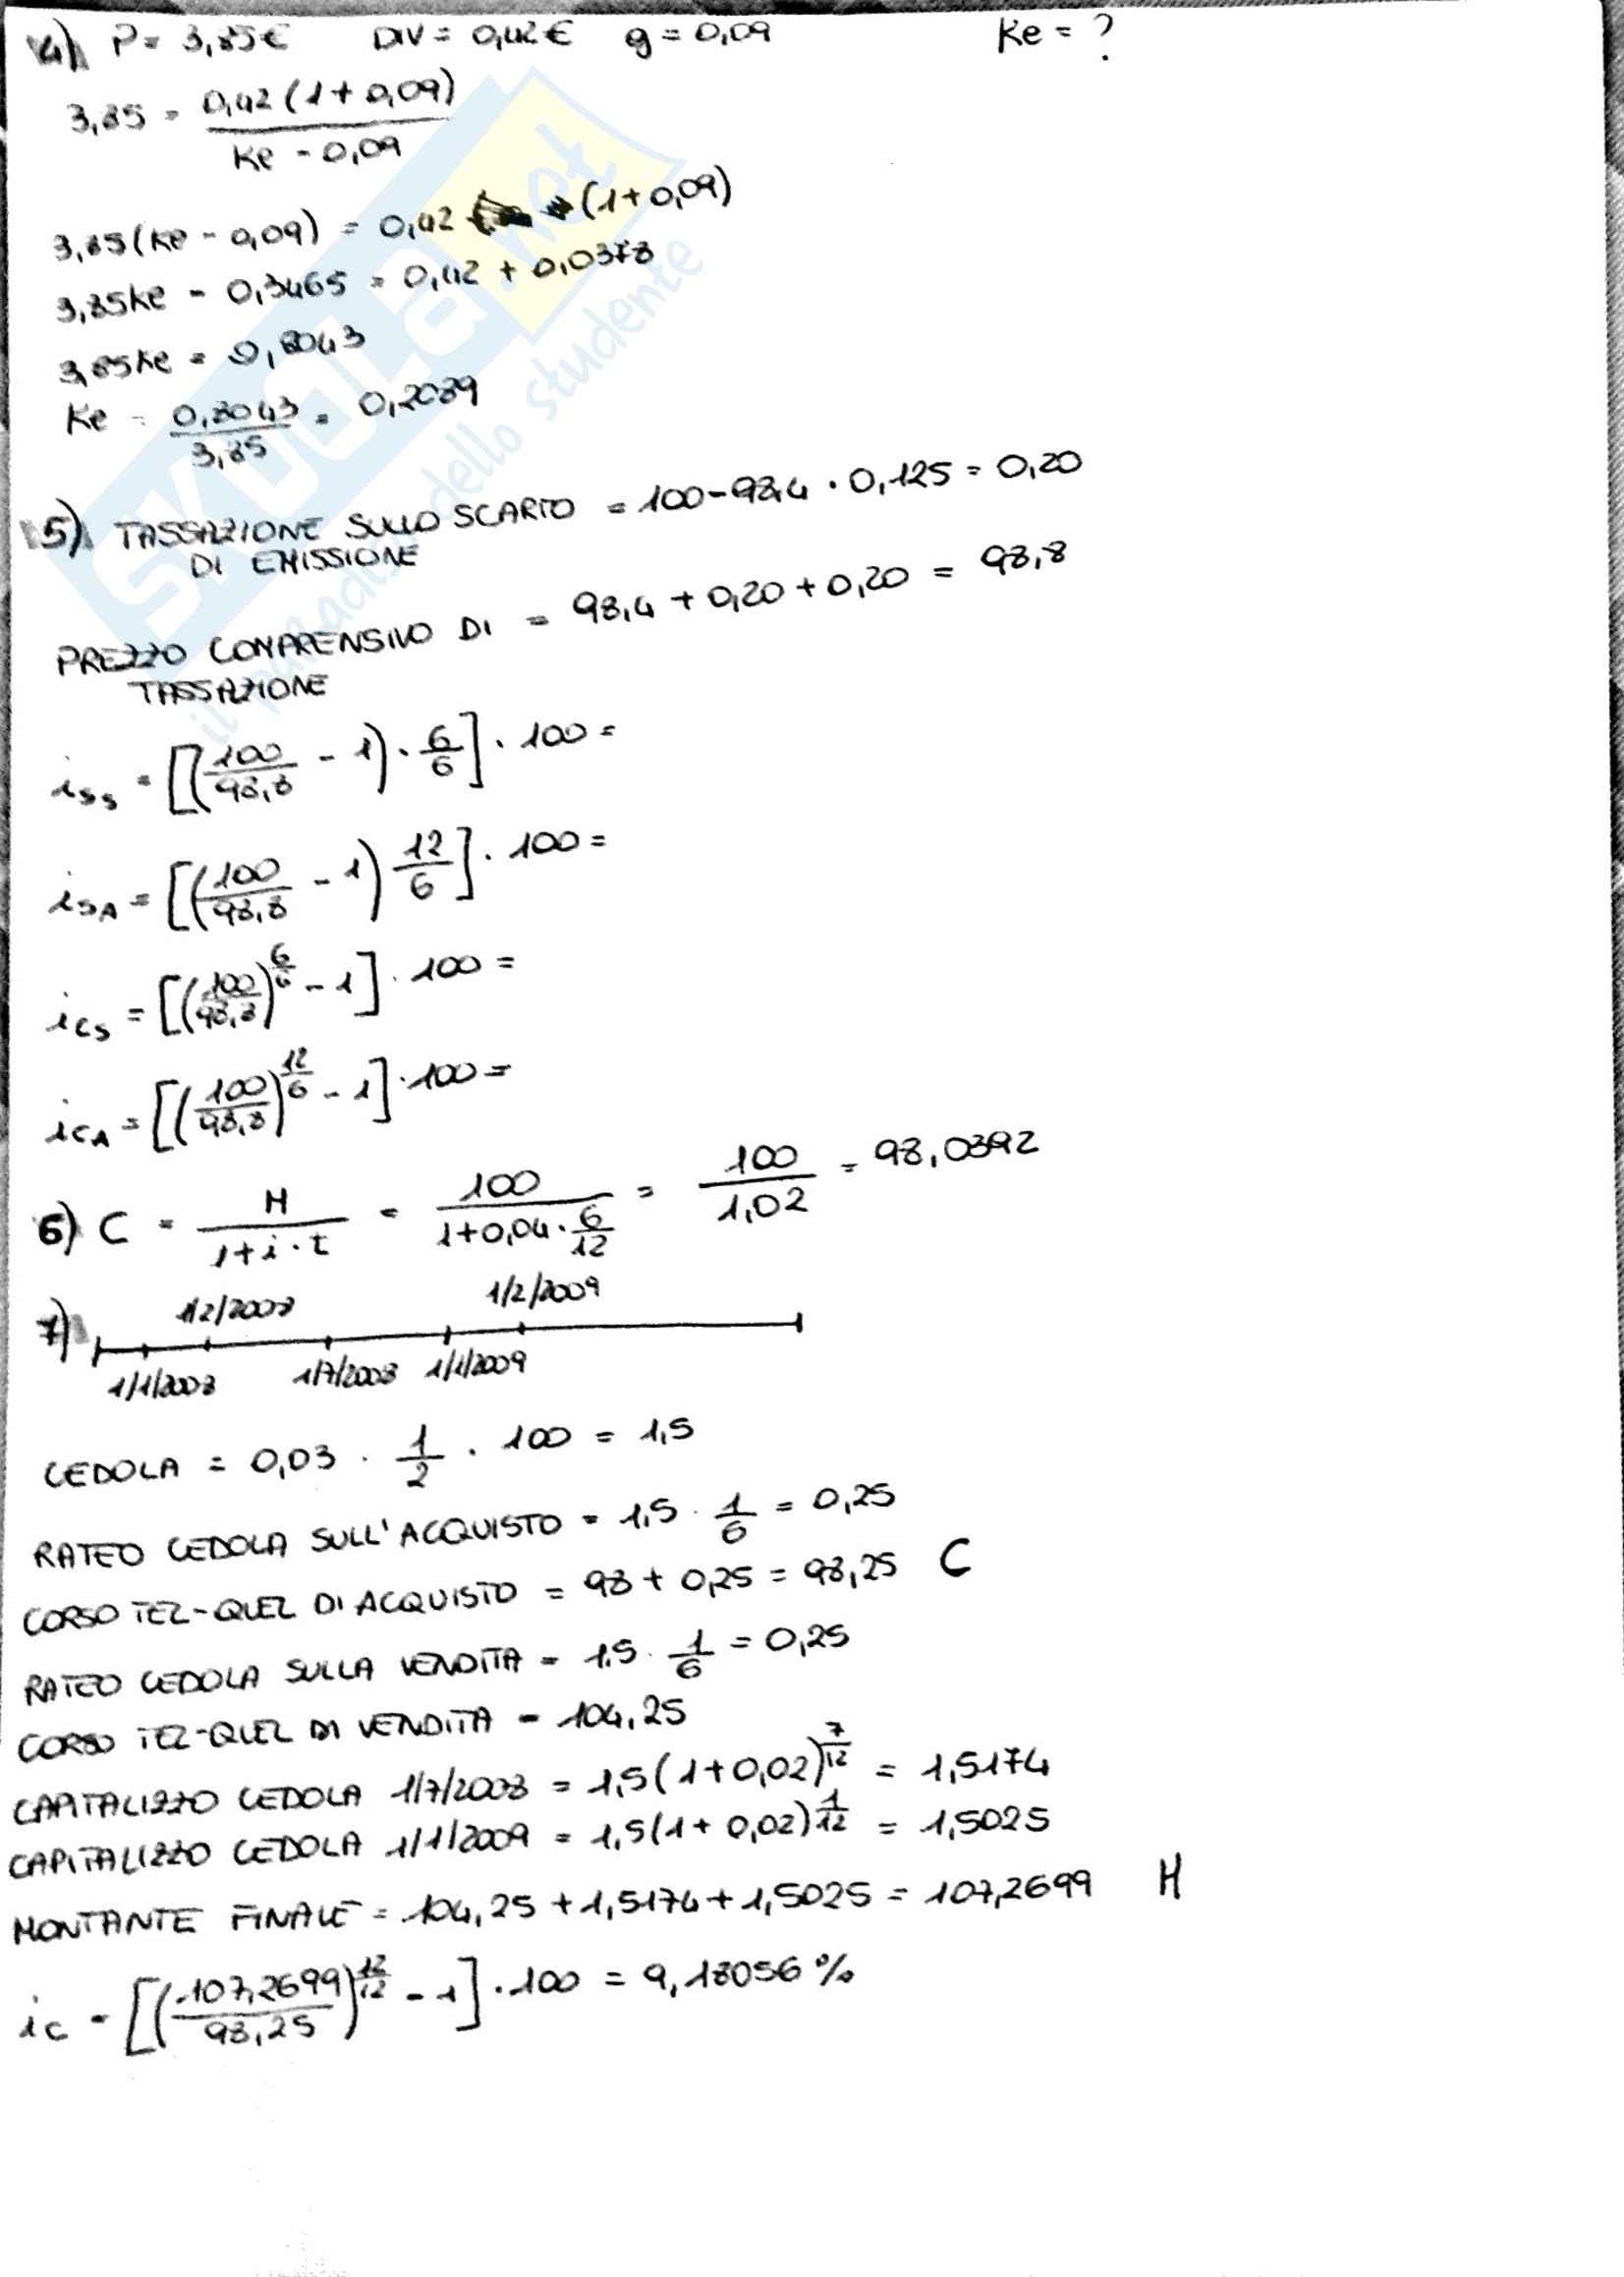 4) P = 3,85€ DIV = 0,42€ g = 0,09 Ke = ?
3,85 = 0,42 (1 + 0,09) / Ke - 0,09
3,85 (Ke - 0,09) = 0,42 (1 + 0,09)
3,85Ke - 0,3465 = 0,42 + 0,0378
3,85Ke = 0,8043
Ke = 0,8043 / 3,85 = 0,2089
5) TASSAZIONE SULLO SCARTO = 100 - 98,4 · 0,125 = 0,20
DI EMISSIONE
PREZZO COMPRENSIVO DI = 98,4 + 0,20 + 0,20 = 98,8
TASSAZIONE
iss = [(100/98,8 - 1) · 6/6] · 100 =
isA = [(100/98,8 - 1) 12/6] · 100 =
ics = [(100/98,8)^6/6 - 1] · 100 =
icA = [(100/98,8)^12/6 - 1] · 100 =
6) C = M / 1 + i · t = 100 / 1 + 0,04 · 6/12 = 100 / 1,02 = 98,0392
7) 1/2/2008 1/2/2009
1/1/2008 1/7/2008 1/1/2009
CEDOLA = 0,03 · 1/2 · 100 = 1,5
RATEO CEDOLA SULL'ACQUISTO = 1,5 · 1/6 = 0,25
CORSO TEL-QUEL DI ACQUISTO = 98 + 0,25 = 98,25 C
RATEO CEDOLA SULLA VENDITA = 1,5 · 1/6 = 0,25
CORSO TEL-QUEL DI VENDITA = 104,25
CAPITALIZZO CEDOLA 1/7/2008 = 1,5 (1 + 0,02)^7/12 = 1,5174
CAPITALIZZO CEDOLA 1/1/2009 = 1,5 (1 + 0,02)^1/12 = 1,5025
MONTANTE FINALE = 104,25 + 1,5174 + 1,5025 = 107,2699 M
ic = [(107,2699/98,25)^12/12 - 1] · 100 = 9,18056 %
SKUOLA.net
il paradiso dello studente